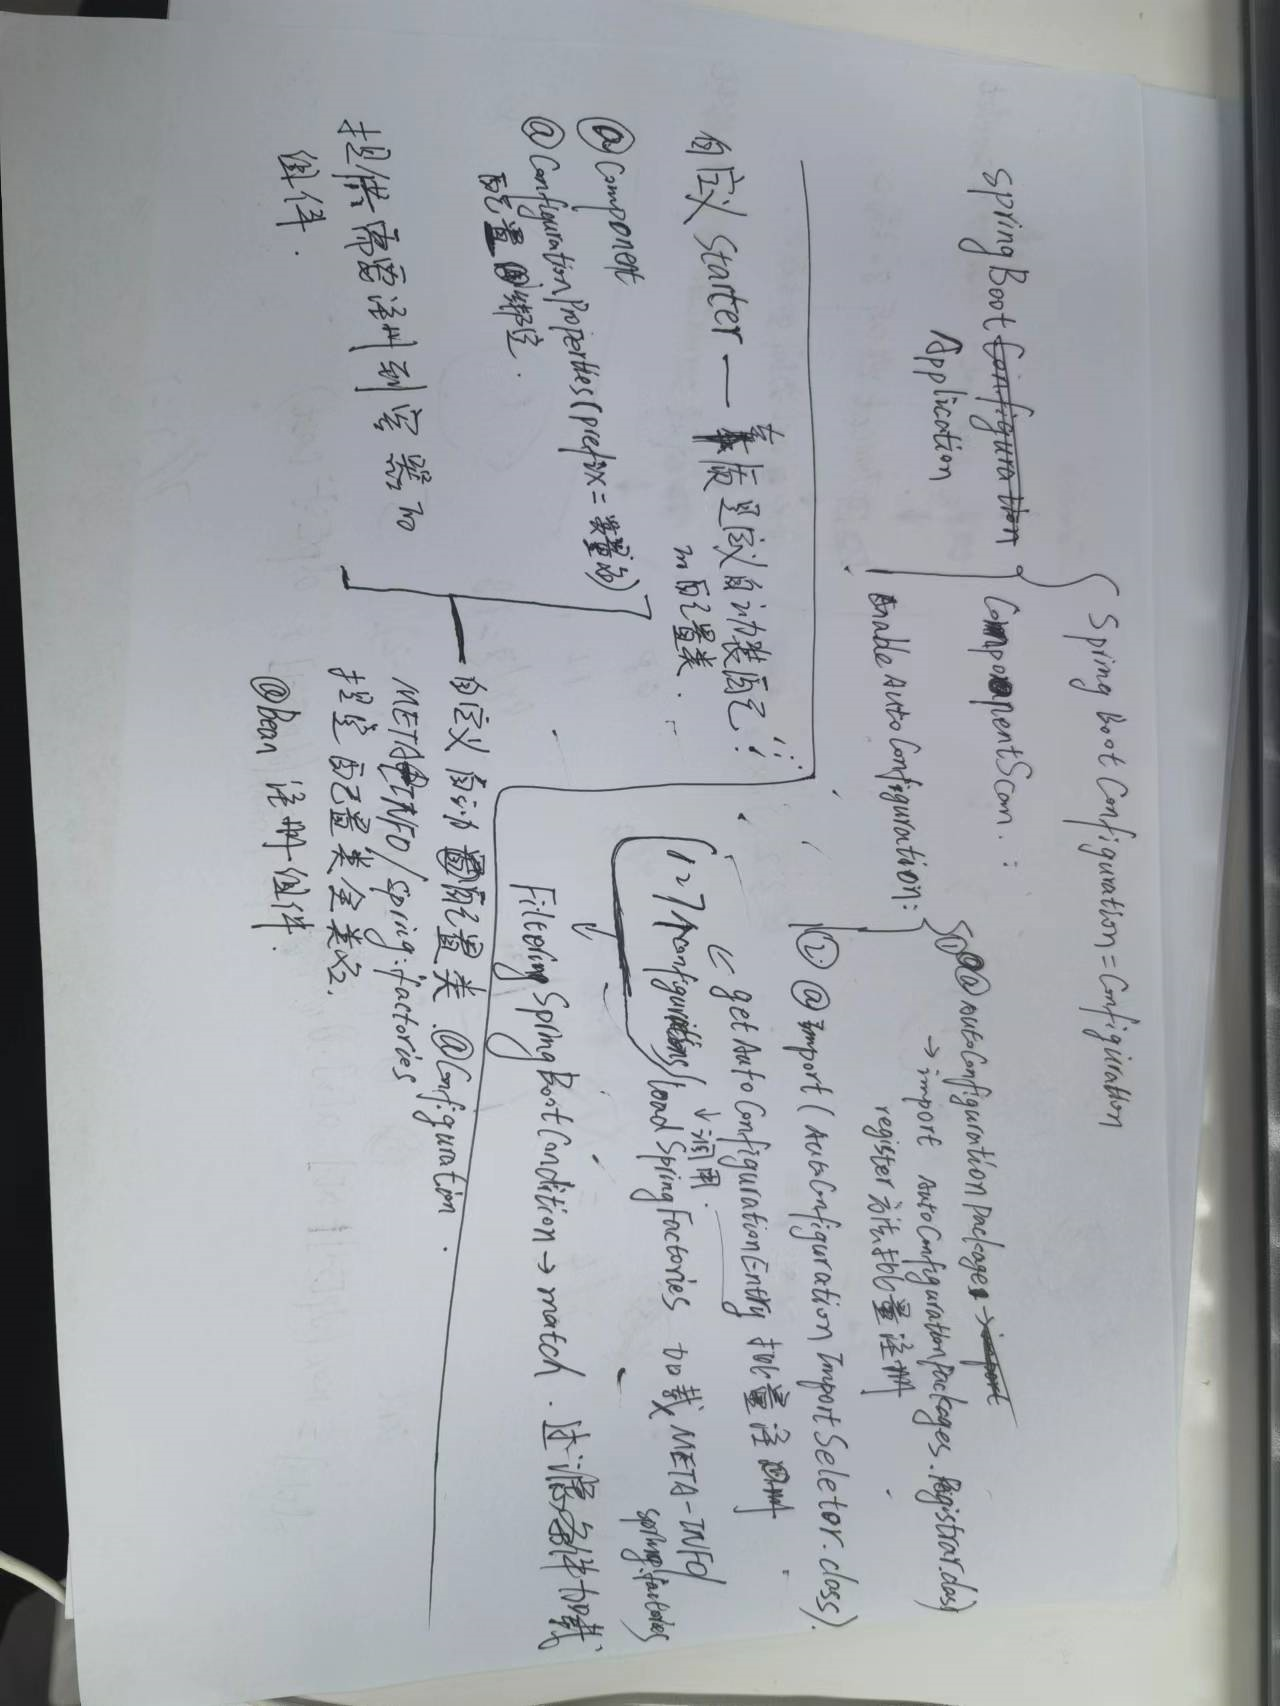 Spring Boot Configuration = Configuration
Spring Boot Configuration
Application
ComponentScan. :
Enable AutoConfiguration:
① @AutoConfigurationPackages → import
→ import AutoConfigurationPackages.Registrar.class)
register 方法批量注册
② @Import (AutoConfiguration Import Seletor.class).
getAutoConfigurationEntry 批量注册
↓ 调用.
(127个configurations) load SpringFactories 加载 META-INFO/
spring.factories
Filtering SpringBootCondition → match. 过滤条件加载
自定义 Starter — 本质是定义自动装配
的配置类.
@Component
@ConfigurationProperties (prefix = 
配置
提供需要注册到容器的
组件.
自定义自动配置类. @Configuration.
META-INFO/spring.factories
指定配置类全类名.
@Bean 注册组件.